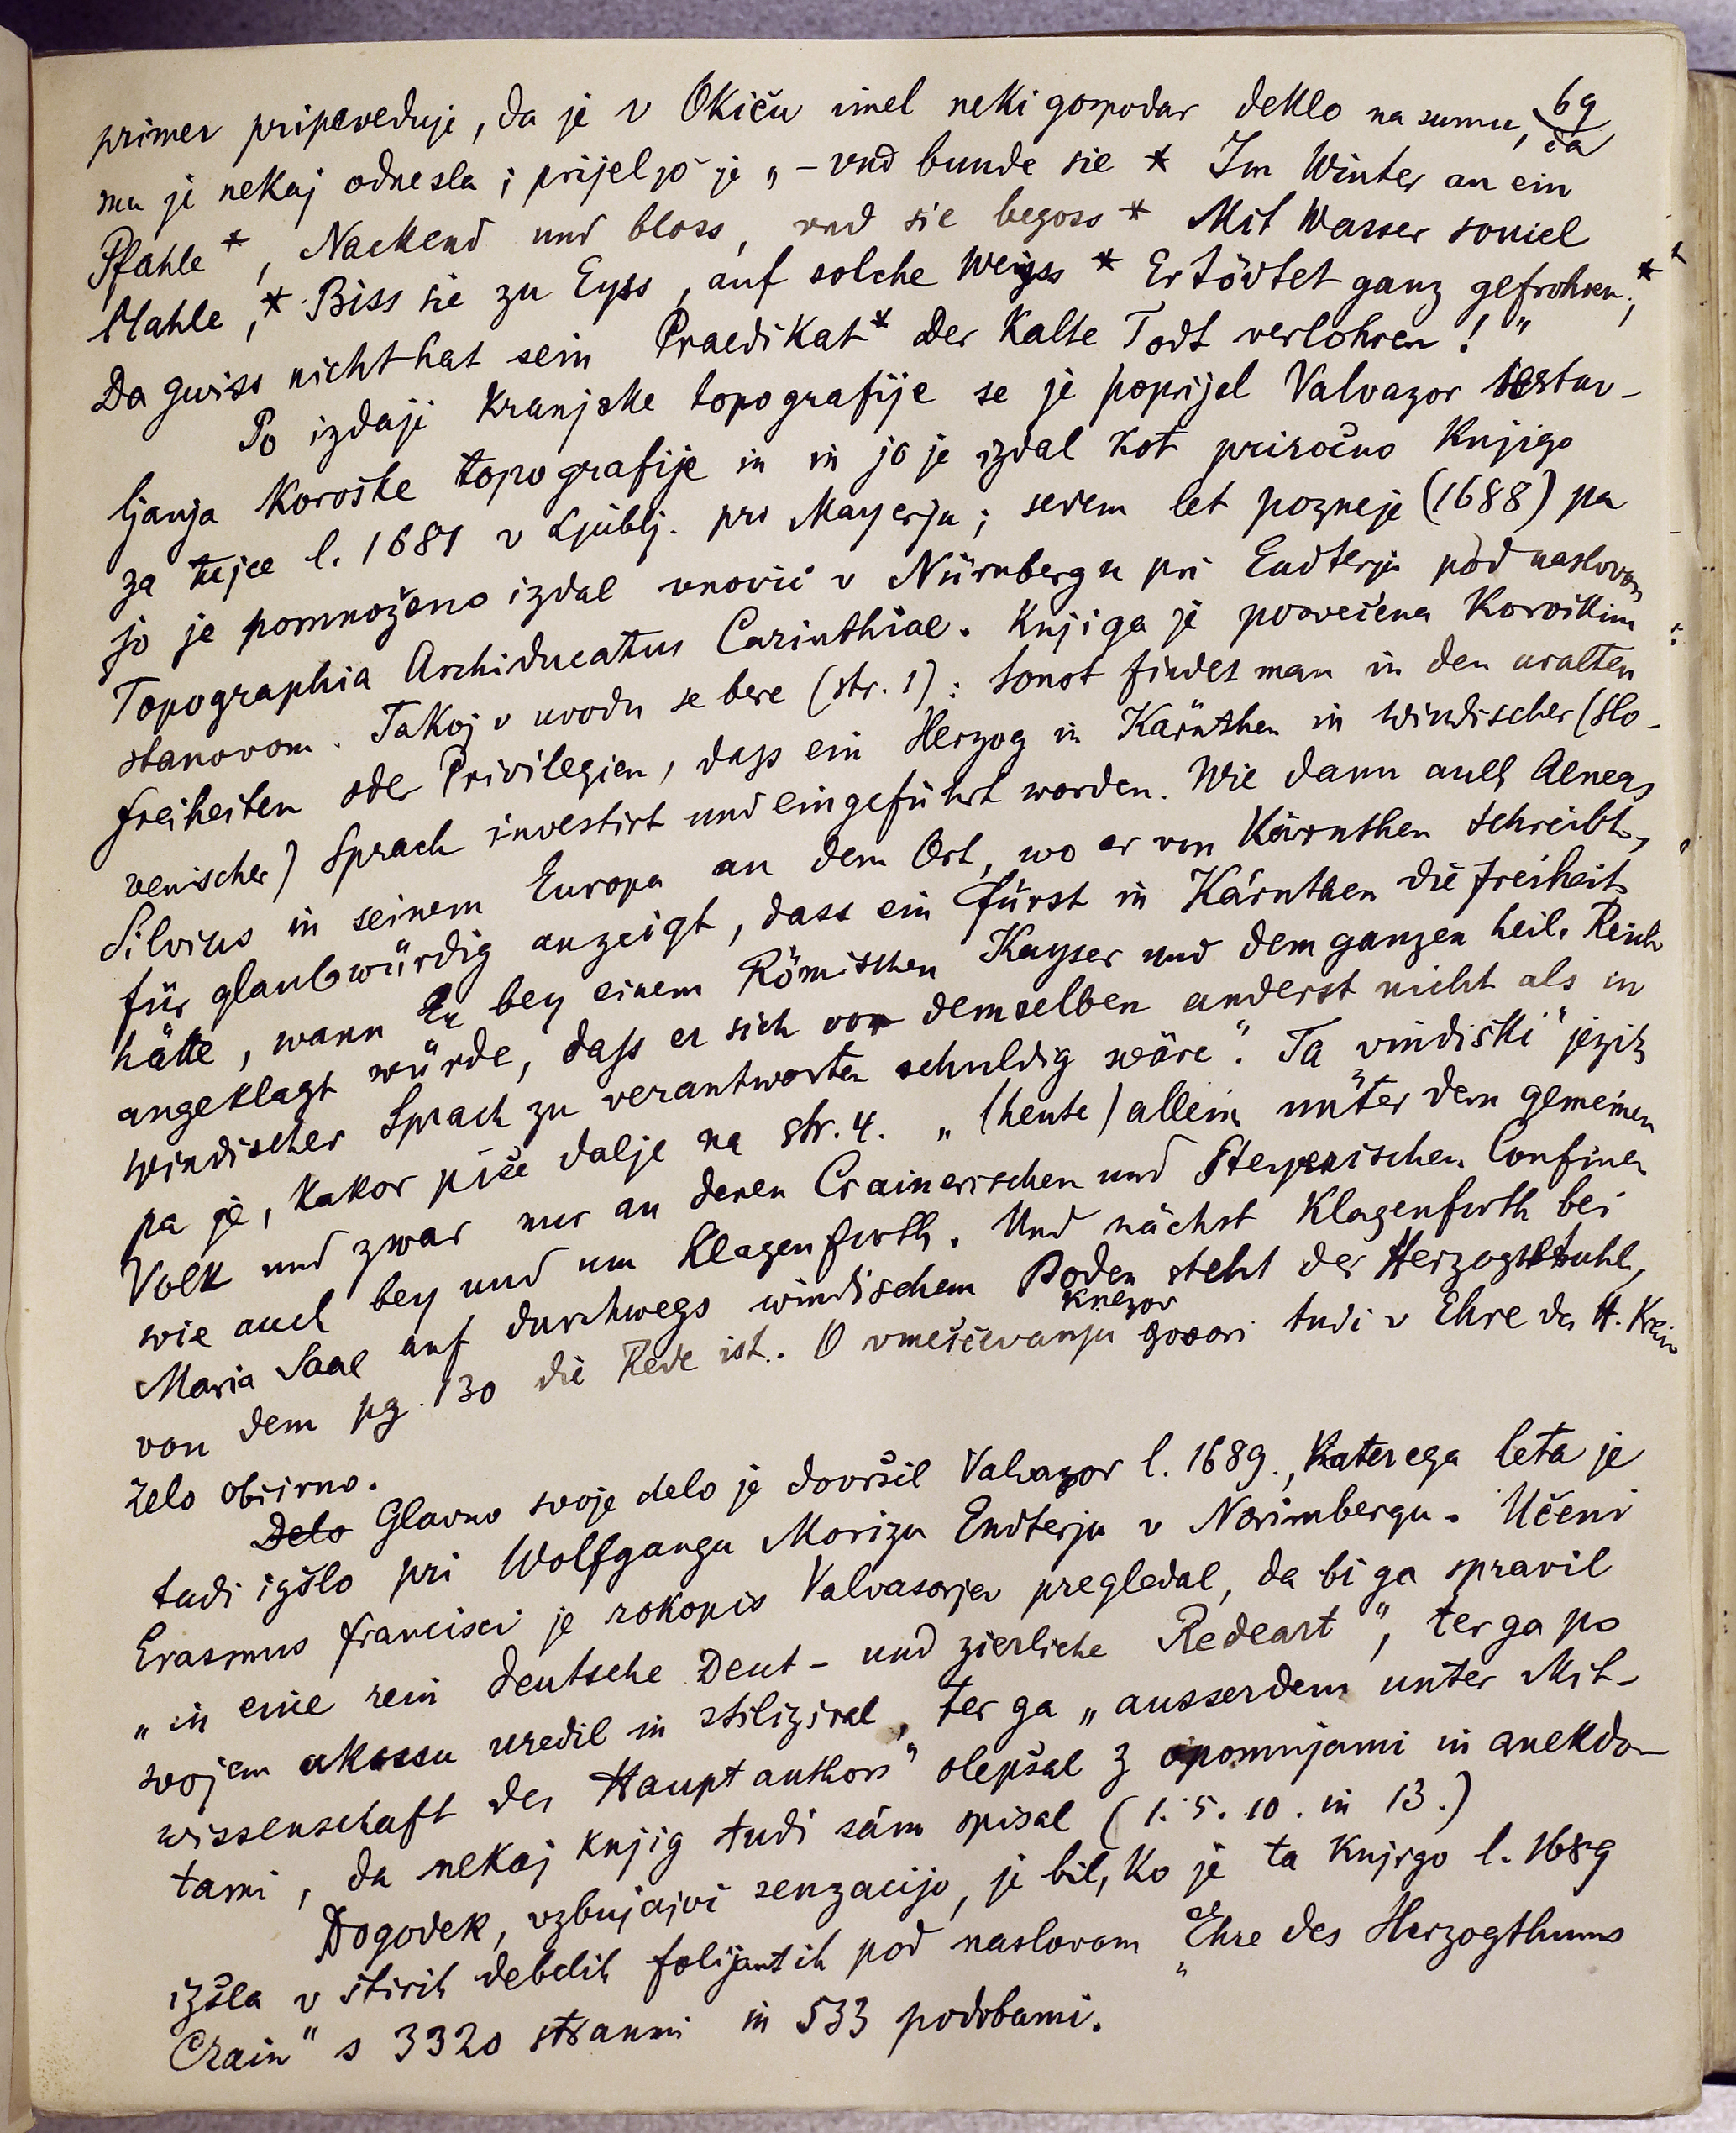 69
primer pripoveduje, da je v Okiču imel neki gospodar deklo na sumu, da
mu je nekaj odnesla; prijel jo je „– vnd bunde sie * Im Winter an ein
Pfahle *, Nackend und bloss, vnd sie begoss * Mit Wasser souiel
Mahle, * Biss sie zu Eyss, auf solche Weyss * Ertödtet ganz gefrohren; *
Da gwiss nicht hat sein Praedikat * Der Kalte Todt verlohren!"
Po izdaji kranjske topografije se je poprijel Valvazor sestav-
ljanja Koroške topografije in in jo je izdal kot priročno knjigo
za tujce l. 1681 v Ljublj. pri Mayerju; sedem let pozneje (1688) pa
jo je pomnoženo izdal vnovič v Nürnbergu pri Endterju pod naslovom
Topographia Archiducatus Carinthiae. Knjiga je posvečena Koroškim
stanovom. Takoj v uvodu se bere (str. 1): Sonst findet man in den uralten
Freiheiten oder Privilegien, dass ein Herzog in Kärnthen in windischer (slo-
venischer) Sprach investirt und eingeführt worden. Wie dann auch Aeneas
Silvius in seinem Europa an dem Ort, wo er von Kärnthen schreibt,
für glaubwürdig anzeigt, dass ein Fürst in Kärnthen die Freiheit
hätte, wann Er bey einem Römischen Kayser und dem ganzen heil. Reich
angeklagt würde, dass er sich vor demselben anderst nicht als in
windischer Sprach zu verantworten schuldig wäre". Ta „vindiški" jezik
pa je, kakor piše dalje na str. 4. „(heute) allein unter dem gemeinen
Volk und zwar nur an denen Crainerischen und Steyerischen Confinen
wie auch bey und um Klagenfurth. Und nächst Klagenfurth bei
Maria Saal auf durchwegs windischem Boden steht der Herzogstuhl,
von dem pg. 130 die Rede ist. O vmeščevanju knezov govori tudi v Ehre d. H. Krain
zelo obširno.
Delo Glavno svoje delo je dovršil Valvazor l. 1689., katerega leta je
tudi izšlo pri Wolfgangu Morizu Endterju v Norimbergu. Učeni
Erasmus Francisci je rokopis Valvasorjev pregledal, da bi ga spravil
„in eine rein deutsche Deut- und zierliche Redeart", ter ga po
svojem okussu uredil in stiliziral, ter ga „ausserdem unter Mit-
wissenschaft des Haupt authors" olepšal z opomnjami in anekdo-
tami, da nekaj knjig tudi sám spisal (1. 5. 10. in 13.)
Dogodek, vzbujajoč senzacijo, je bil, ko je ta knjiga l. 1689
izšla v štirih debelih folijantih pod naslovom „Ehre des Herzogthums
Crain" s 3320 stranmi in 533 podobami.